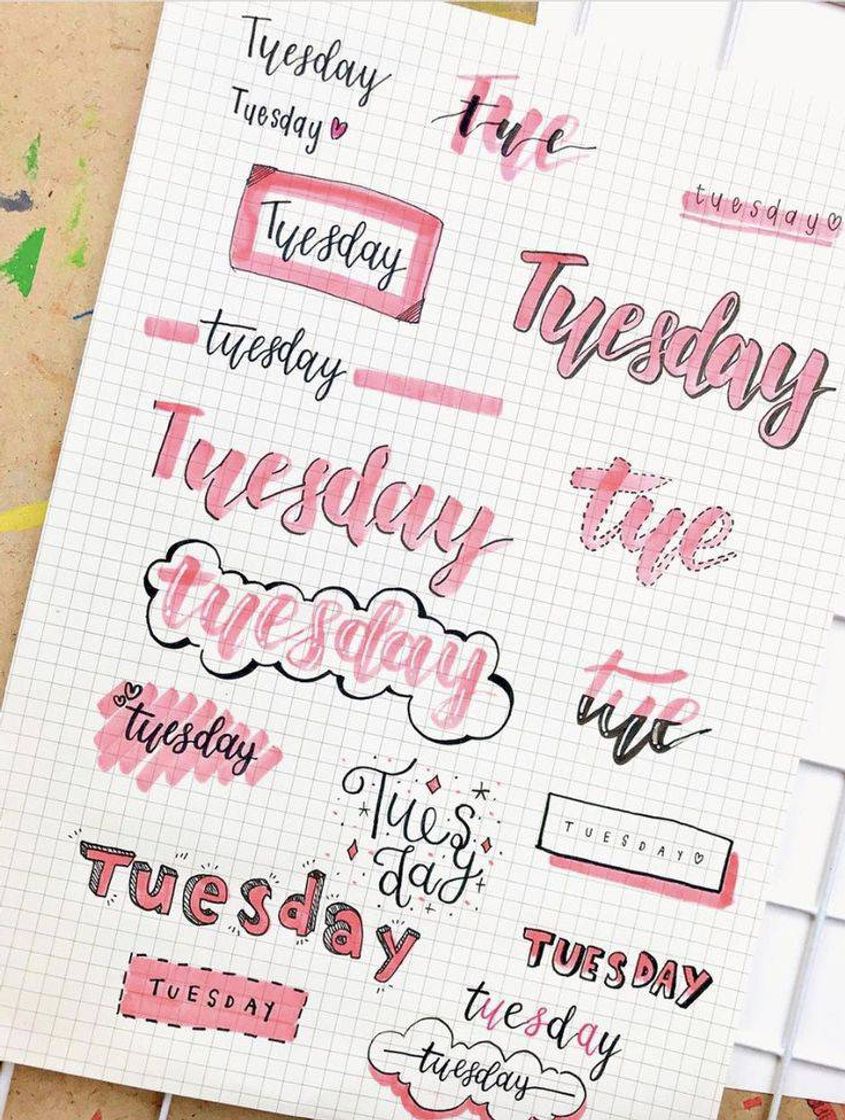 Tuesday
Tuesday
tue
tuesday
Tuesday
Tuesday
tuesday
Tuesday
tue
tuesday
tue
tuesday
Tues
day
TUESDAY
Tuesday
TUESDAY
TUESDAY
tuesday
tuesday